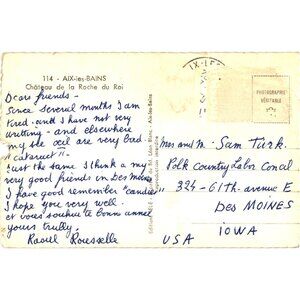 114 - AIX-les-BAINS
Château de la Roche du Roi
Dear friends -
Since several months I am
tired - and I have not very
writting - and elsewhere
my the œil are very bad
"cataract" -
Just the same I think a my
very good friends in Des Moines
I have good remember "candies"
I hope you very well.
et vous souhaite la bonne année
yours trully.
Raoul Rousselle
IX-LES
PHOTOGRAPHIE
VÉRITABLE
Mrs and m. Sam Turk.
Polk Country Labor Concal
334-61th avenue E
Des MOINES
IOWA
USA